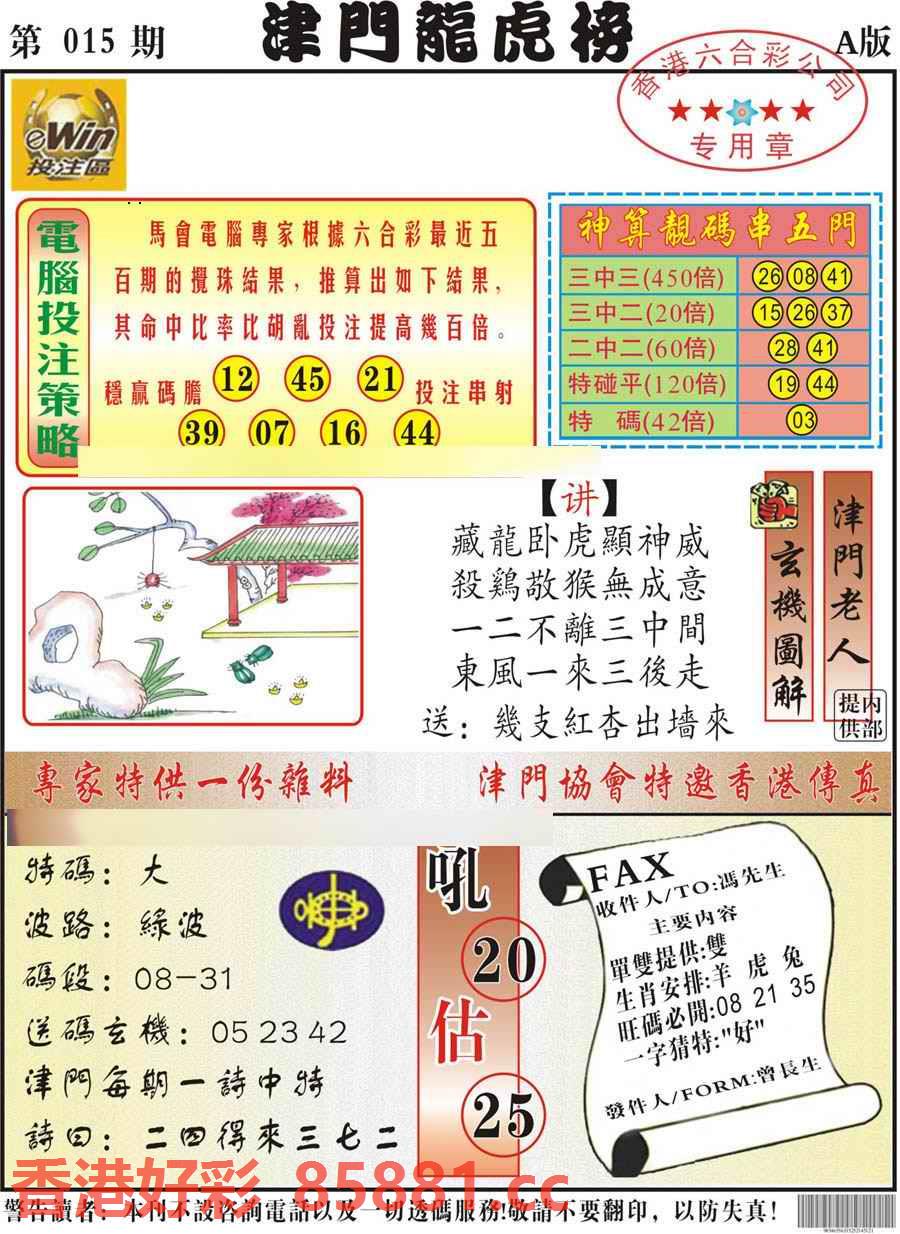 第 015 期
津門龍虎榜
A版
香港六合彩公司
专用章
eWin
投注區
電腦投注策略
馬會電腦專家根據六合彩最近五
百期的攪珠結果，推算出如下結果，
其命中比率比胡亂投注提高幾百倍。
穩贏碼膽 12 45 21 投注串射
39 07 16 44
神算靚碼串五門
三中三(450倍) 26 08 41
三中二(20倍) 15 26 37
二中二(60倍) 28 41
特碰平(120倍) 19 44
特 碼(42倍) 03
【讲】
藏龍卧虎顯神威
殺鷄敬猴無成意
一二不離三中間
東風一來三後走
送：幾支紅杏出墻來
玄機圖解
津門老人
提供
内部
專家特供一份雜料
津門協會特邀香港傳真
特碼：大
波路：緑波
碼段：08-31
送碼玄機：05 23 42
津門每期一詩中特
詩曰：二四得來三七二
吼
20
估
25
FAX
收件人/TO:馮先生
主要内容
單雙提供:雙
生肖安排:羊 虎 兔
旺碼必開:08 21 35
一字猜特:"好"
發件人/FORM:曾長生
香港好彩 85881.cc
警告讀者：本刊不設咨詢電話以及一切透碼服務!敬請不要翻印，以防失真!